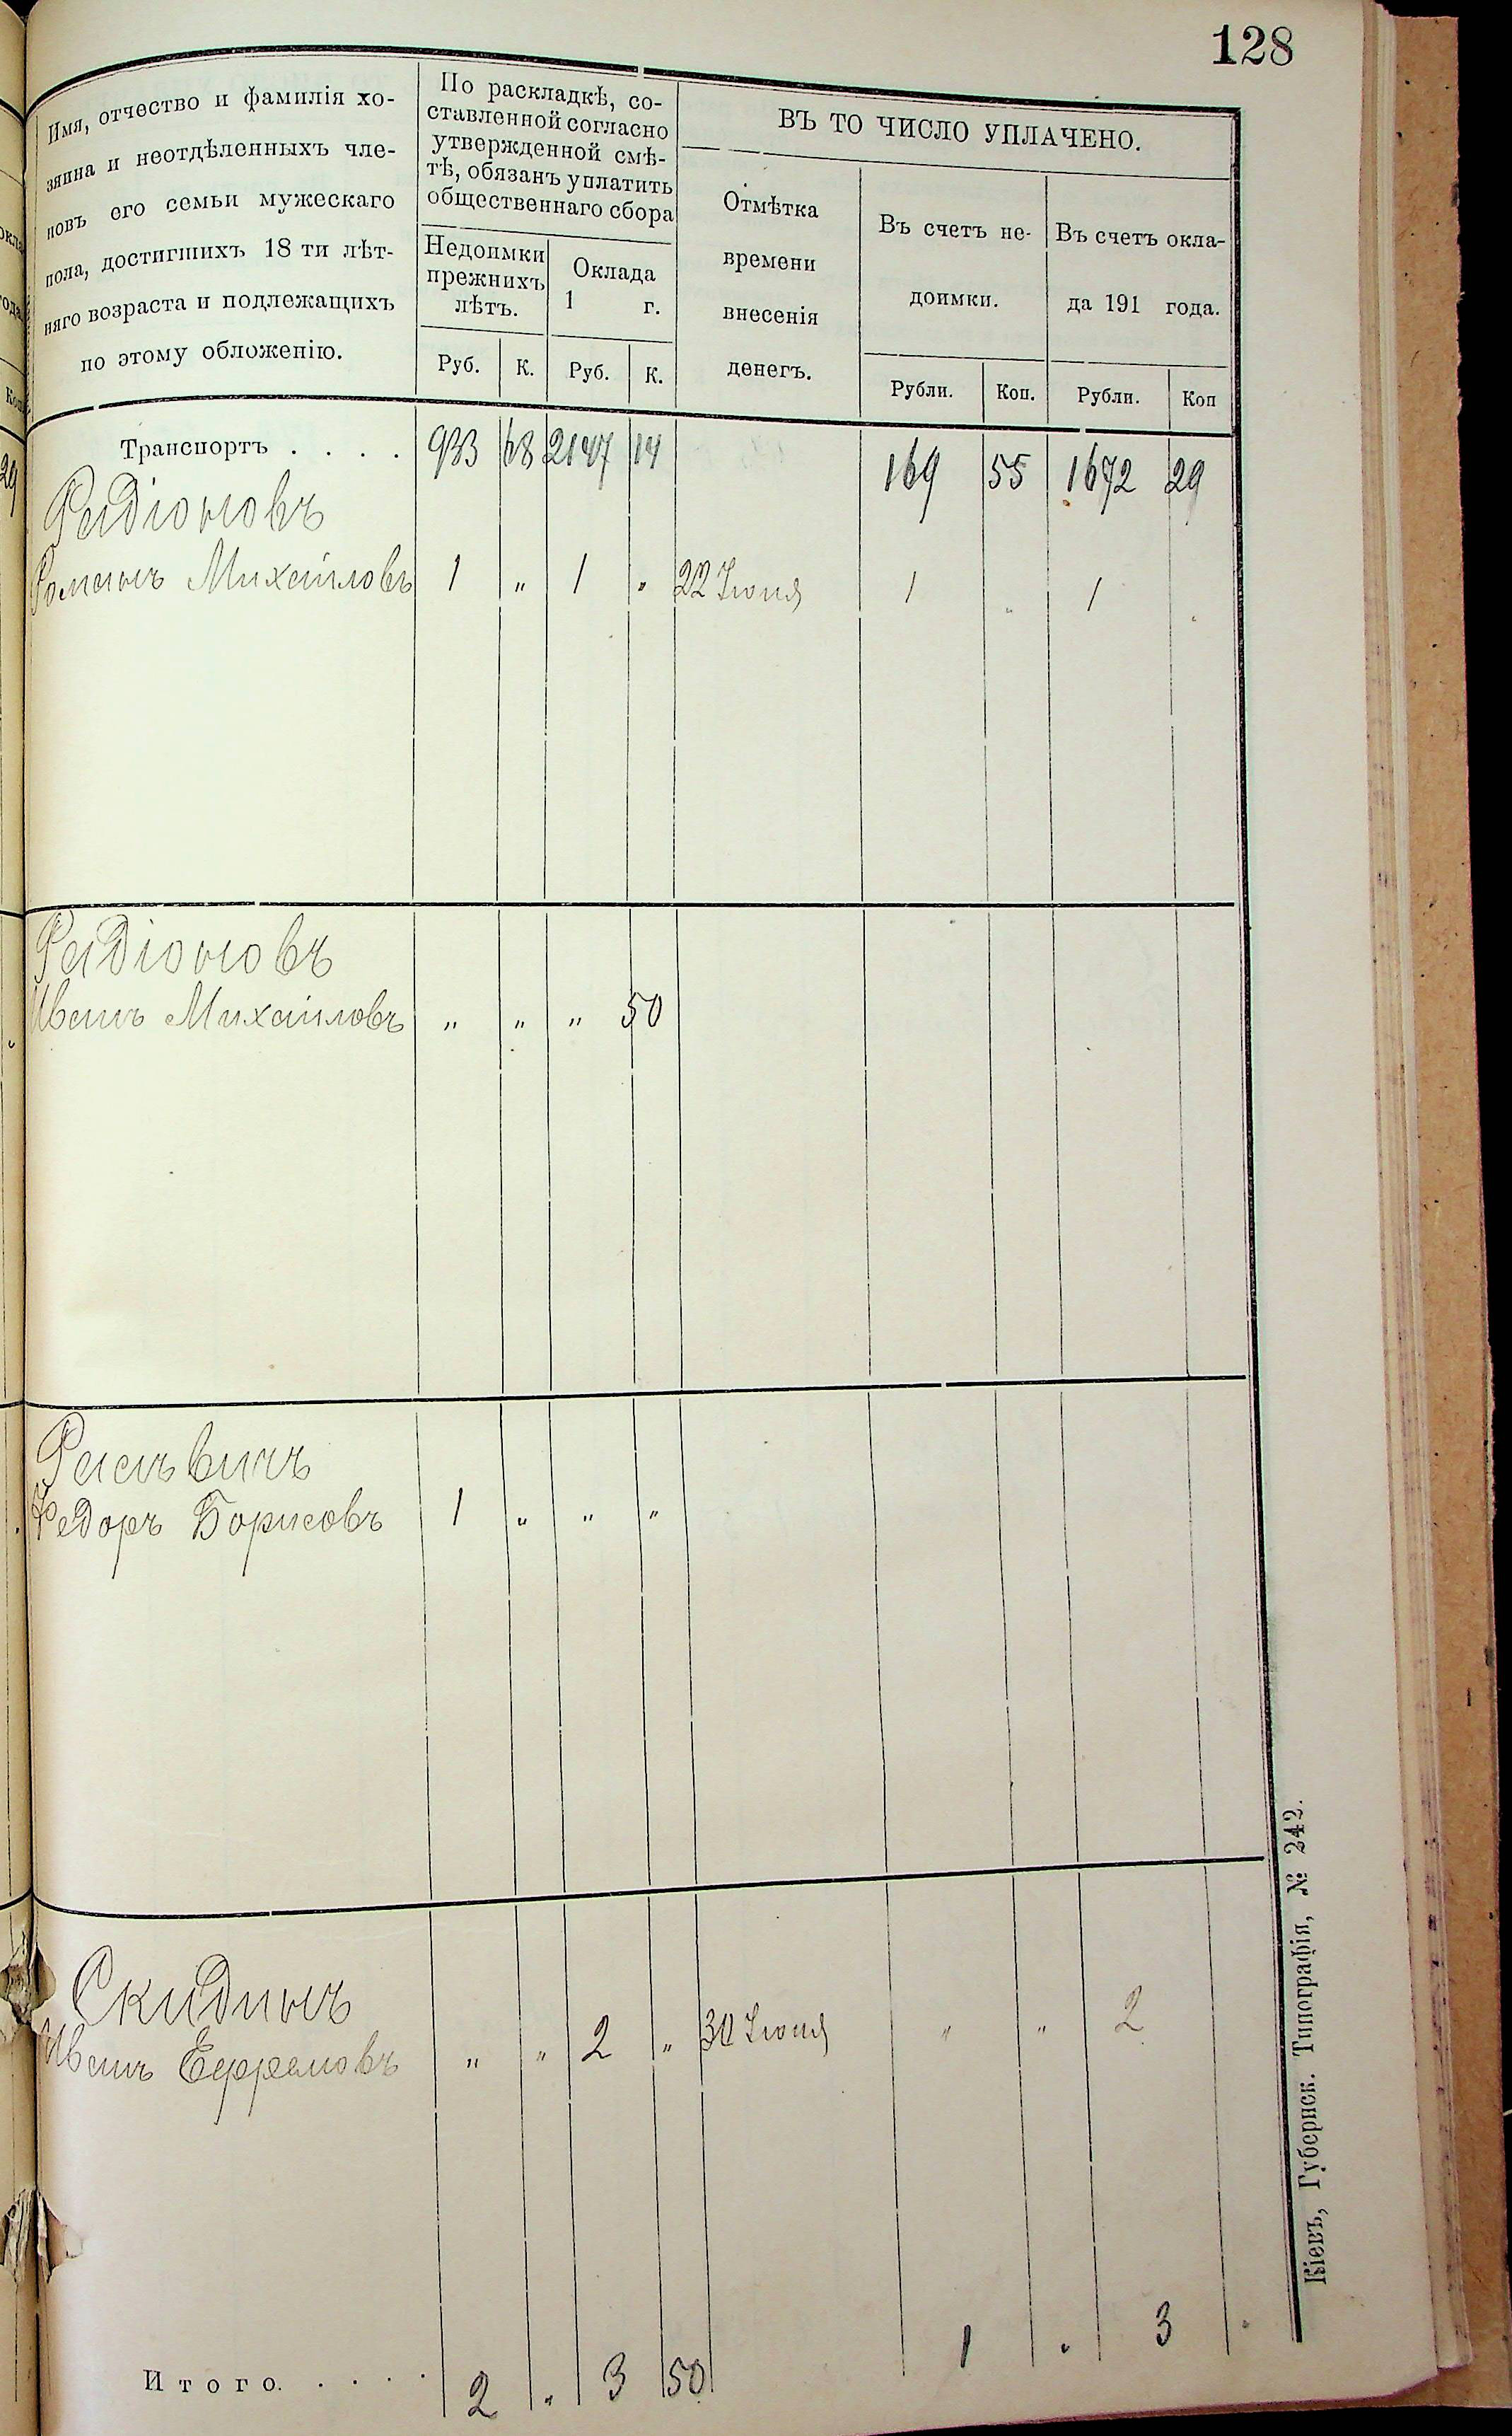 128
Имя, отчество и фамилія хо-
зяина и неотдѣленныхъ чле-
новъ его семьи мужескаго
пола, достигшихъ 18 ти лѣт-
няго возраста и подлежащихъ
по этому обложенію.
По раскладкѣ, со-
ставленной согласно
утвержденной смѣ-
тѣ, обязанъ уплатить
общественнаго сбора
Недоимки
прежнихъ
лѣтъ.
Оклада
1 г.
Руб. К. Руб. К.
ВЪ ТО ЧИСЛО УПЛАЧЕНО.
Отмѣтка
времени
внесенія
денегъ.
Въ счетъ не-
доимки.
Въ счетъ окла-
да 191 года.
Рубли. Коп. Рубли. Коп
Транспортъ . . . . 933 68 2147 14 169 55 1672 29
Радіоновъ
Романъ Михайловъ 1 " 1 " 22 Іюня 1 " 1 "
Радіоновъ
Иванъ Михайловъ " " " 50
Федоръ Борисовъ 1 " " "
Скидинъ
Иванъ Ефремовъ " " 2 " 30 Іюня " " 2
Итого. . . . . 2 " 3 50 1 " 3 "
Кіевъ, Губернск. Типографія, № 242.